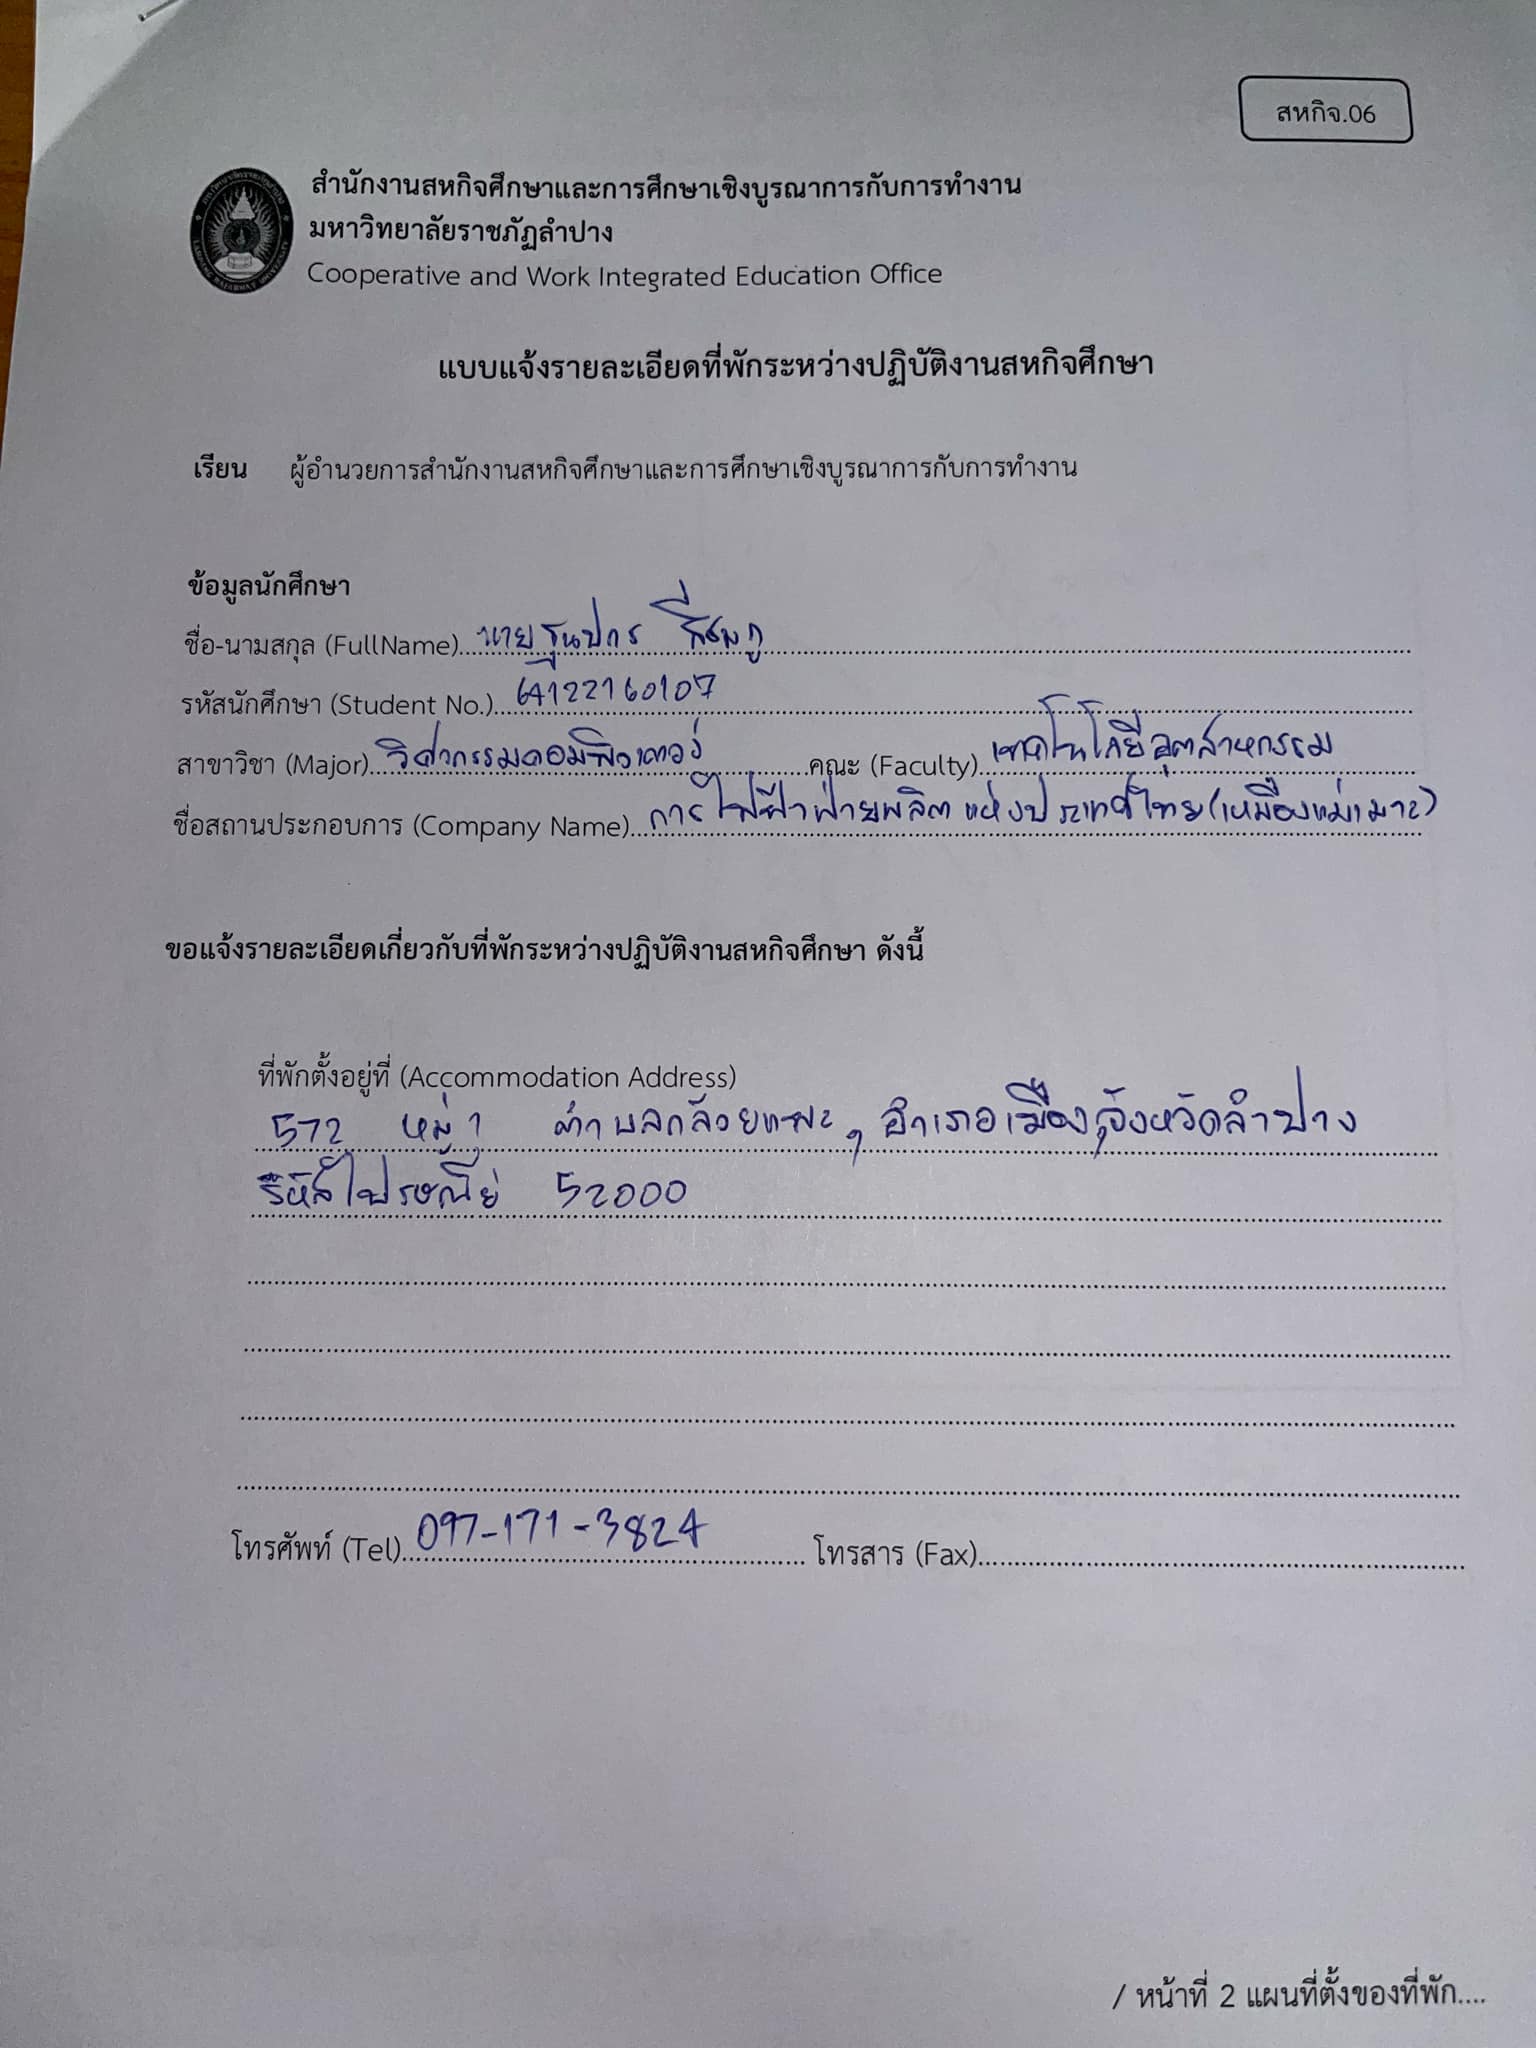 สหกิจ.06
สำนักงานสหกิจศึกษาและการศึกษาเชิงบูรณาการกับการทำงาน
มหาวิทยาลัยราชภัฏลำปาง
Cooperative and Work Integrated Education Office
แบบแจ้งรายละเอียดที่พักระหว่างปฏิบัติงานสหกิจศึกษา
เรียน ผู้อำนวยการสำนักงานสหกิจศึกษาและการศึกษาเชิงบูรณาการกับการทำงาน
ข้อมูลนักศึกษา
ชื่อ-นามสกุล (FullName) นาย
รหัสนักศึกษา (Student No.) 64122160107
สาขาวิชา (Major) วิศวกรรมคอมพิวเตอร์ คณะ (Faculty) เทคโนโลยีอุตสาหกรรม
ชื่อสถานประกอบการ (Company Name) การไฟฟ้าฝ่ายผลิตแห่งประเทศไทย(เหมืองแม่เมาะ)
ขอแจ้งรายละเอียดเกี่ยวกับที่พักระหว่างปฏิบัติงานสหกิจศึกษา ดังนี้
ที่พักตั้งอยู่ที่ (Accommodation Address)
572 หมู่ 1 ตำบลกล้วยแพะ, อำเภอเมือง,จังหวัดลำปาง
รหัสไปรษณีย์ 52000
โทรศัพท์ (Tel) 097-171-3824 โทรสาร (Fax)
/ หน้าที่ 2 แผนที่ตั้งของที่พัก....